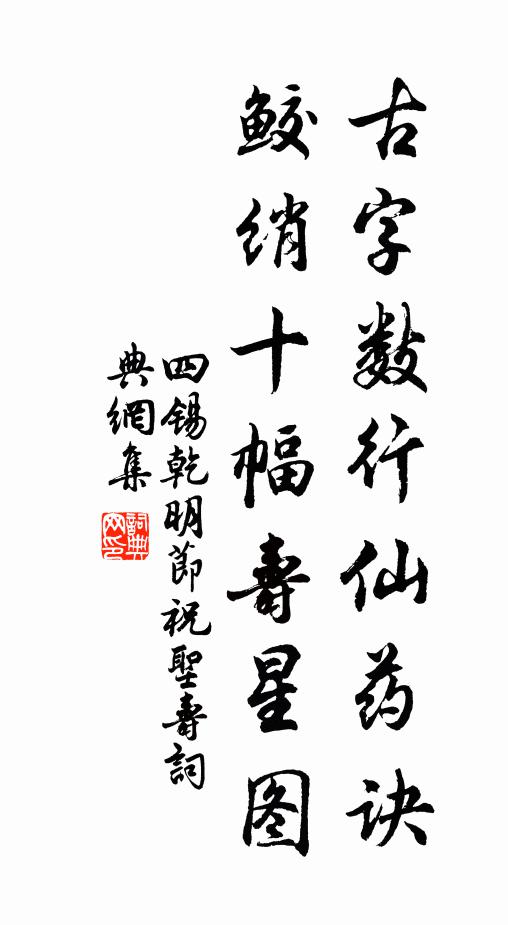 古字数行仙药诀
鲛绡十幅寿星图
四锡乾明節祝聖壽詞
典網集
詞典網印